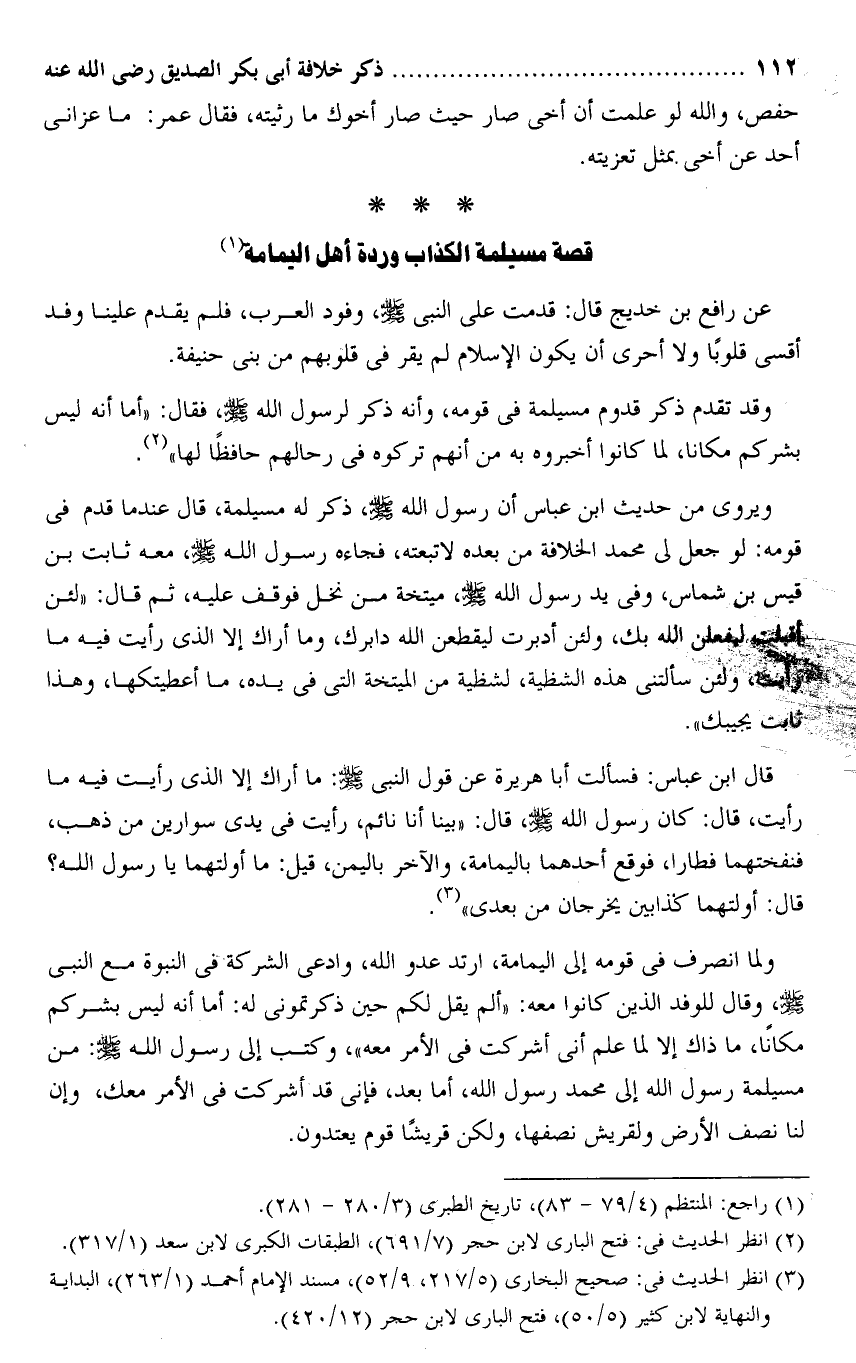 ١١٢ ............................................ ذكر خلافة أبى بكر الصديق رضى الله عنه
حفص، والله لو علمت أن أخى صار حيث صار أخوك ما رثيته، فقال عمر: ما عزانى
أحد عن أخى بمثل تعزيته.
* * *
قصة مسيلمة الكذاب وردة أهل اليمامة(١)
عن رافع بن خديج قال: قدمت على النبى ﷺ، وفود العرب، فلم يقدم علينا وفد
أقسى قلوبًا ولا أحرى أن يكون الإسلام لم يقر فى قلوبهم من بنى حنيفة.
وقد تقدم ذكر قدوم مسيلمة فى قومه، وأنه ذكر لرسول الله ﷺ، فقال: «أما أنه ليس
بشركم مكانا، لما كانوا أخبروه به من أنهم تركوه فى رحالهم حافظًا لها»(٢).
ويروى من حديث ابن عباس أن رسول الله ﷺ، ذكر له مسيلمة، قال عندما قدم فى
قومه: لو جعل لى محمد الخلافة من بعده لاتبعته، فجاءه رسول الله ﷺ، معه ثابت بن
قيس بن شماس، وفى يد رسول الله ﷺ، ميتخة من نخل فوقف عليه، ثم قال: «لئن
أقبلت ليفعلن الله بك، ولئن أدبرت ليقطعن الله دابرك، وما أراك إلا الذى رأيت فيه ما
رأيت، ولئن سألتنى هذه الشظية، لشظية من الميتخة التى فى يده، ما أعطيتكها، وهذا
ثابت يجيبك».
قال ابن عباس: فسألت أبا هريرة عن قول النبى ﷺ: ما أراك إلا الذى رأيت فيه ما
رأيت، قال: كان رسول الله ﷺ، قال: «بينا أنا نائم، رأيت فى يدى سوارين من ذهب،
فنفختهما فطارا، فوقع أحدهما باليمامة، والآخر باليمن، قيل: ما أولتهما يا رسول الله؟
قال: أولتهما كذابين يخرجان من بعدى»(٣).
ولما انصرف فى قومه إلى اليمامة، ارتد عدو الله، وادعى الشركة فى النبوة مع النبى
ﷺ، وقال للوفد الذين كانوا معه: «ألم يقل لكم حين ذكرتمونى له: أما أنه ليس بشركم
مكانًا، ما ذاك إلا لما علم أنى أشركت فى الأمر معه»، وكتب إلى رسول الله ﷺ: من
مسيلمة رسول الله إلى محمد رسول الله، أما بعد، فإنى قد أشركت فى الأمر معك، وإن
لنا نصف الأرض ولقريش نصفها، ولكن قريشًا قوم يعتدون.
(١) راجع: المنتظم (٧٩/٤ - ٨٣)، تاريخ الطبرى (٢٨٠/٣ - ٢٨١).
(٢) انظر الحديث فى: فتح البارى لابن حجر (٦٩١/٧)، الطبقات الكبرى لابن سعد (٣١٧/١).
(٣) انظر الحديث فى: صحيح البخارى (٢١٧/٥، ٥٢/٩)، مسند الإمام أحمد (٢٦٣/١)، البداية
والنهاية لابن كثير (٥٠/٥)، فتح البارى لابن حجر (٤٢٠/١٢).